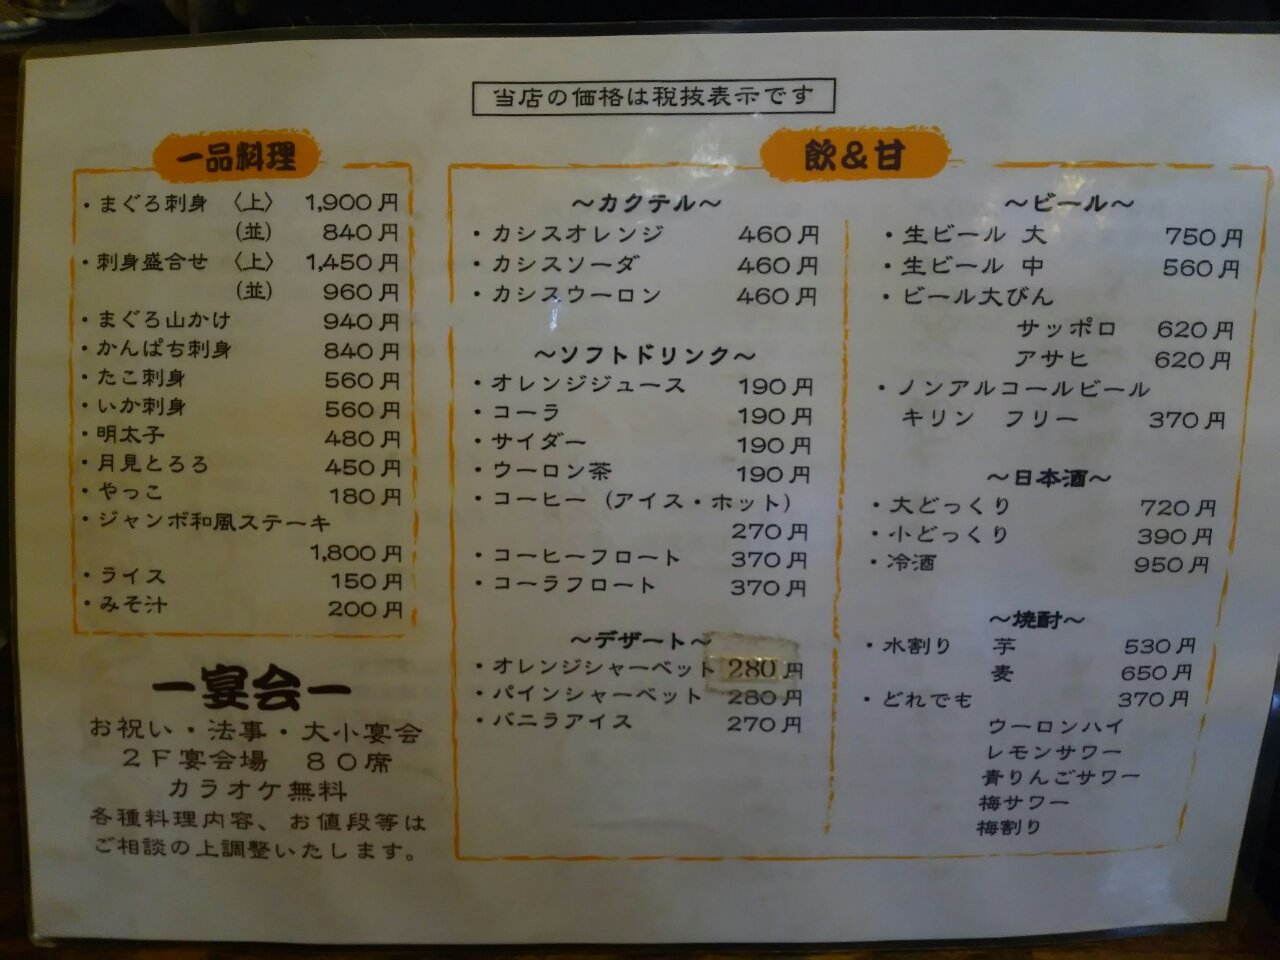 当店の価格は税抜表示です
一品料理
・まぐろ刺身 〈上〉 1,900円
(並) 840円
・刺身盛合せ 〈上〉 1,450円
(並) 960円
・まぐろ山かけ 940円
・かんぱち刺身 840円
・たこ刺身 560円
・いか刺身 560円
・明太子 480円
・月見とろろ 450円
・やっこ 180円
・ジャンボ和風ステーキ
1,800円
・ライス 150円
・みそ汁 200円
ー宴会ー
お祝い・法事・大小宴会
2F宴会場 80席
カラオケ無料
各種料理内容、お値段等は
ご相談の上調整いたします。
飲&甘
〜カクテル〜
・カシスオレンジ 460円
・カシスソーダ 460円
・カシスウーロン 460円
〜ソフトドリンク〜
・オレンジジュース 190円
・コーラ 190円
・サイダー 190円
・ウーロン茶 190円
・コーヒー(アイス・ホット)
270円
・コーヒーフロート 370円
・コーラフロート 370円
〜デザート〜
・オレンジシャーベット 280円
・パインシャーベット 280円
・バニラアイス 270円
〜ビール〜
・生ビール 大 750円
・生ビール 中 560円
・ビール大びん
サッポロ 620円
アサヒ 620円
・ノンアルコールビール
キリン フリー 370円
〜日本酒〜
・大どっくり 720円
・小どっくり 390円
・冷酒 950円
〜焼酎〜
・水割り 芋 530円
麦 650円
・どれでも 370円
ウーロンハイ
レモンサワー
青りんごサワー
梅サワー
梅割り